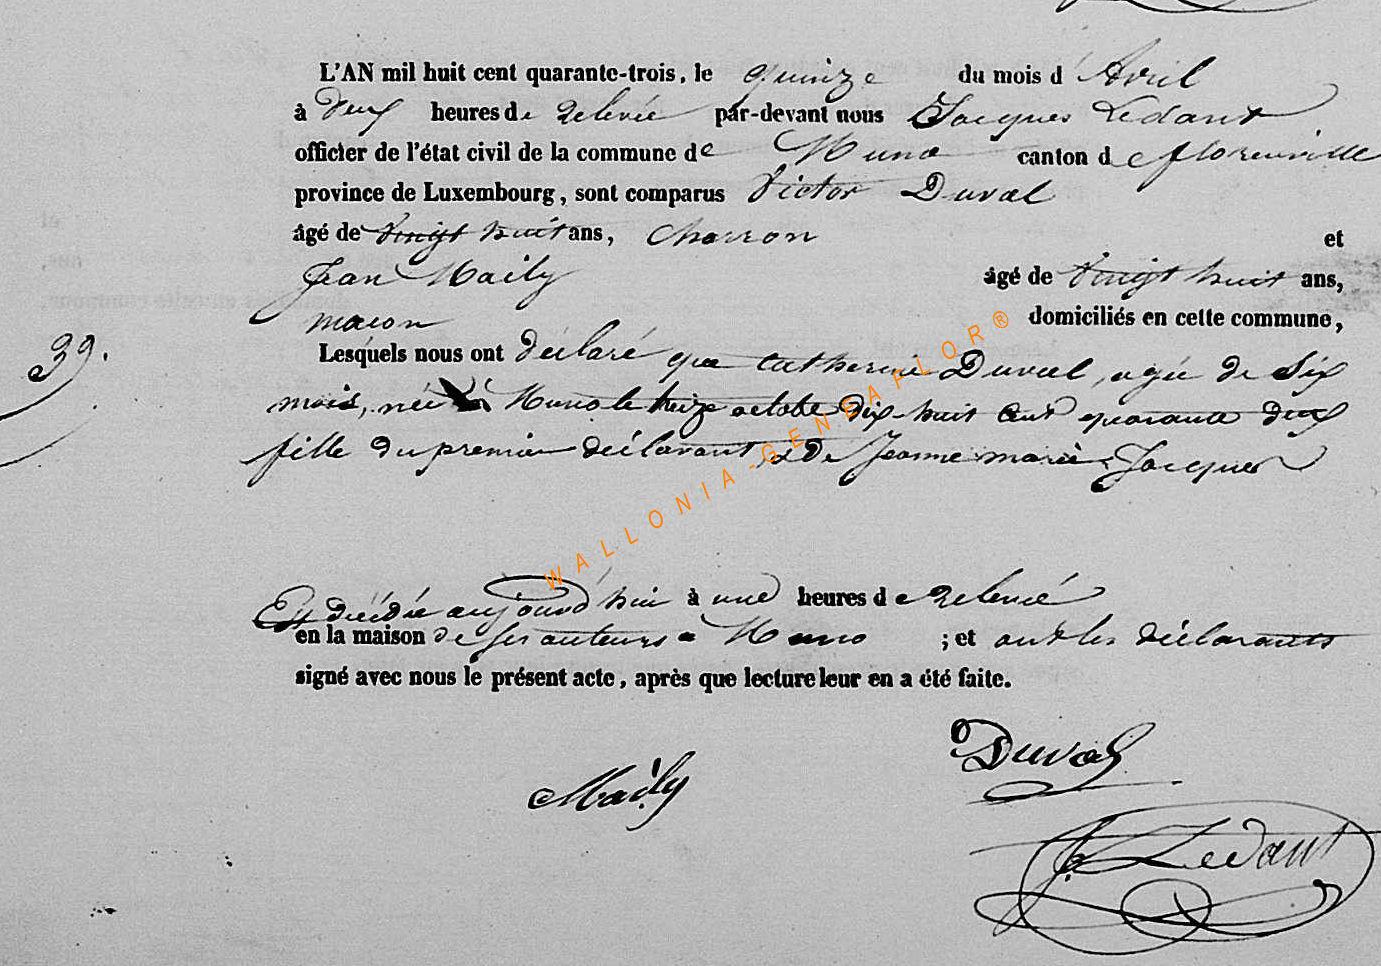 L'AN mil huit cent quarante-trois, le quinze du mois d'Avril
à deux heures de relevée par-devant nous Jacques Ledant
officier de l'état civil de la commune de Muno canton de florenville
province de Luxembourg, sont comparus Victor Duval
âgé de vingt huit ans, charron et
Jean Maily âgé de vingt huit ans,
macon domiciliés en cette commune,
39.
Lesquels nous ont déclaré que Catherine Duval, agée de six
mois, née à Muno le treize octobe dix-huit cent quarante deux
fille du premier déclarant, & de Jeanne marie Jacques
WALLONIA-GENEAFLOR®
Est décédée aujourd'hui à une heures de relevée
en la maison de ses auteurs a Muno ; et ont les déclarants
signé avec nous le présent acte, après que lecture leur en a été faite.
Duval
Maily
J. Ledant